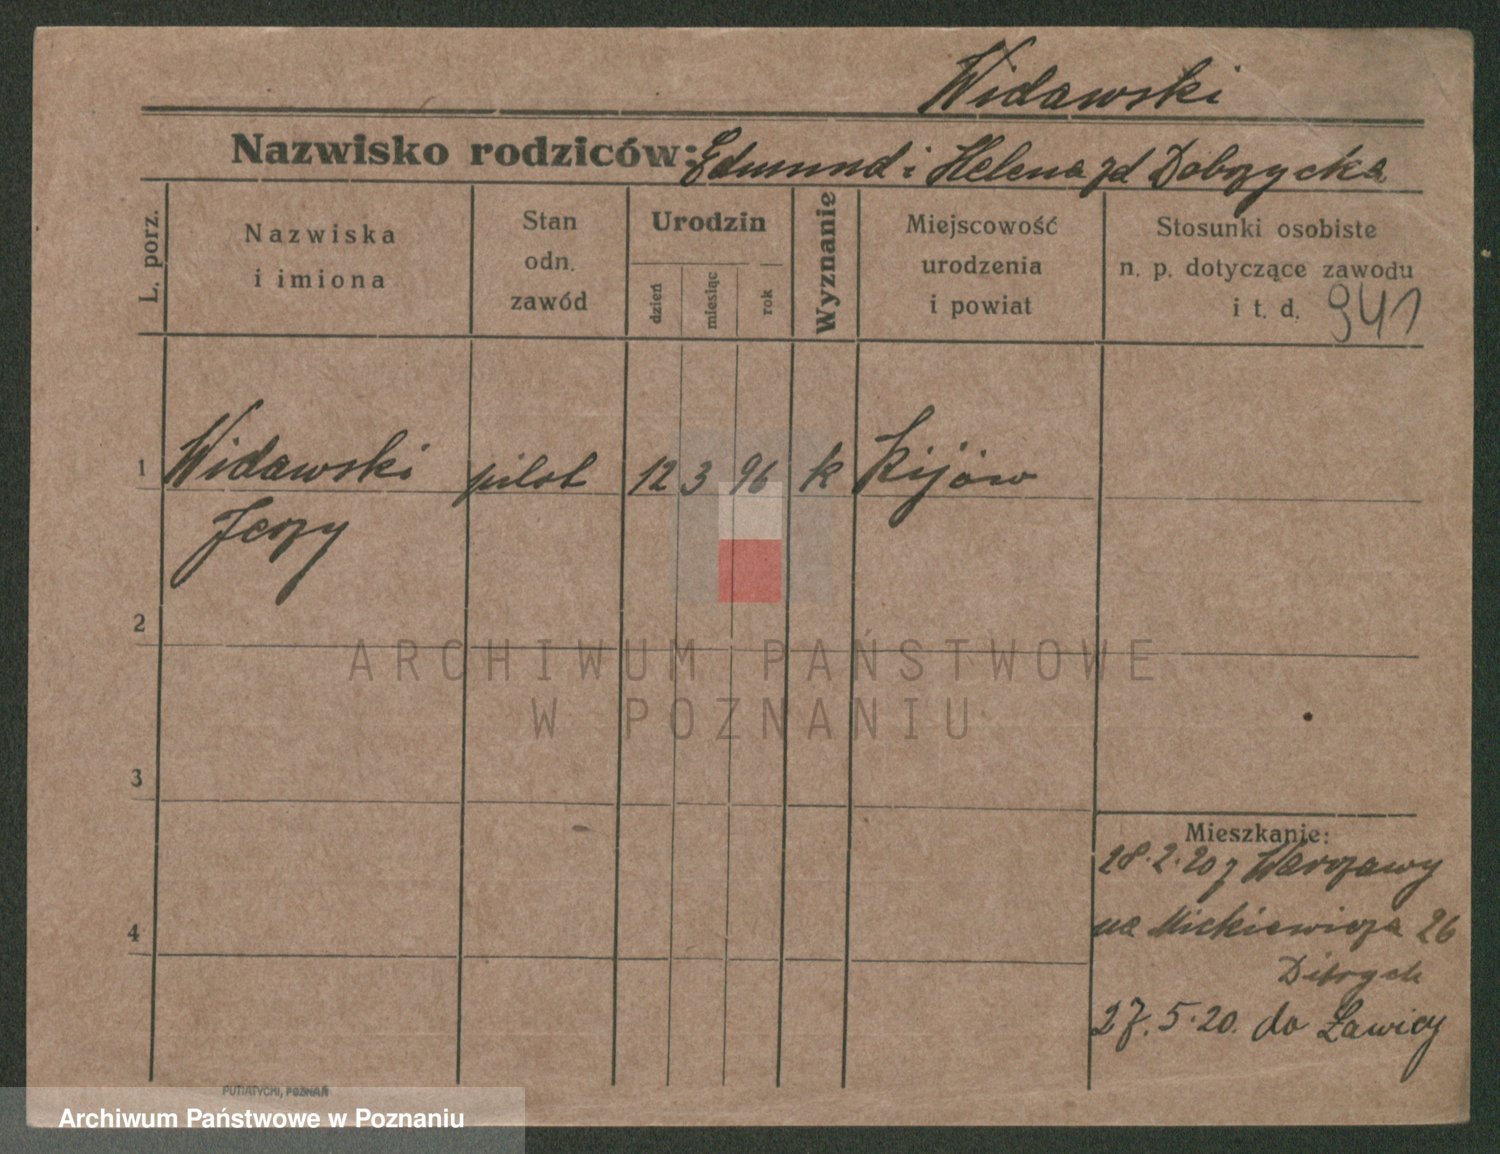 Widawski
Nazwisko rodziców: Edmund i Helena zd Dobrzycka
L. porz.
Nazwiska
i imiona
Stan
odn.
zawód
Urodzin
dzień
miesiąc
rok
Wyznanie
Miejscowość
urodzenia
i powiat
Stosunki osobiste
n. p. dotyczące zawodu
i t. d. 941
1 Widawski pilot 12 3 96 k Kijów
Jerzy
2
3
4
Mieszkanie:
28.2.20 z Warszawy
na Mickiewicza 26
27.5.20. do Ławicy
PUTIATYCKI, POZNAŃ
ARCHIWUM PAŃSTWOWE
W POZNANIU
Archiwum Państwowe w Poznaniu